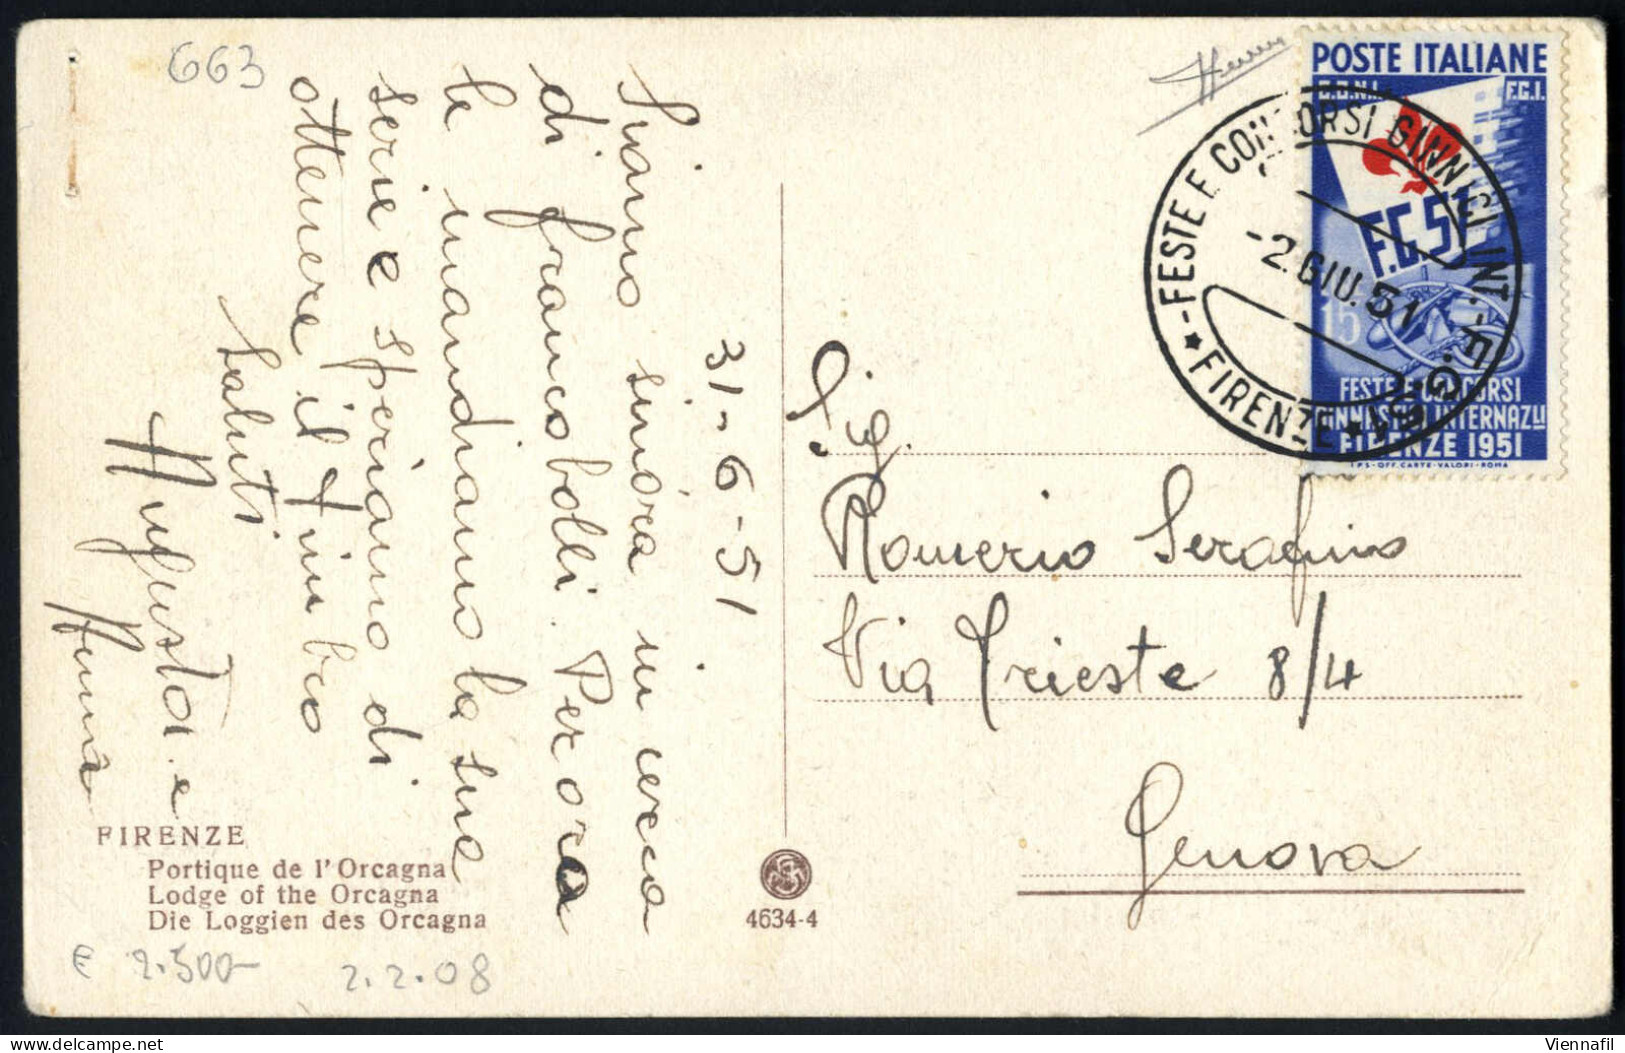 663
31-6-51
Siamo sinóra in cerca
di francobolli. Per ora
le mandiamo la sua
serie e speriamo di
ottenere il timbro
Saluti
Augusta e
FIRENZE
Portique de l'Orcagna
Lodge of the Orcagna
Die Loggien des Orcagna
€ 2.500-
2.2.08
4634-4
POSTE ITALIANE
C.O.N.I. F.G.I.
F.G. 51
15
FESTE E CONCORSI
GINNASTICI INTERNAZLI
FIRENZE 1951
I.P.S.-OFF. CARTE-VALORI-ROMA
-FESTE E CONCORSI GINNICI INT.-F.G. 51
-2.GIU.51
★ FIRENZE ★
Sig.
Romerio Serafino
Via Trieste 8/4
Genova
Viennafil